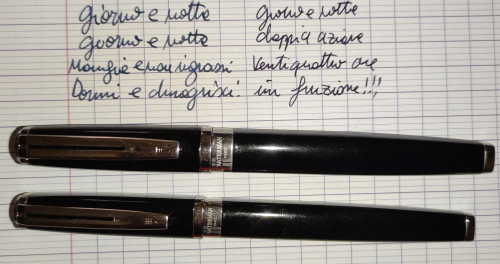 giorno e notte giorno e notte
giorno e notte doppia azione
Mangi e non ingrassi Ventiquattro ore
Dormi e dimagrisci in funzione!!!
WATERMAN